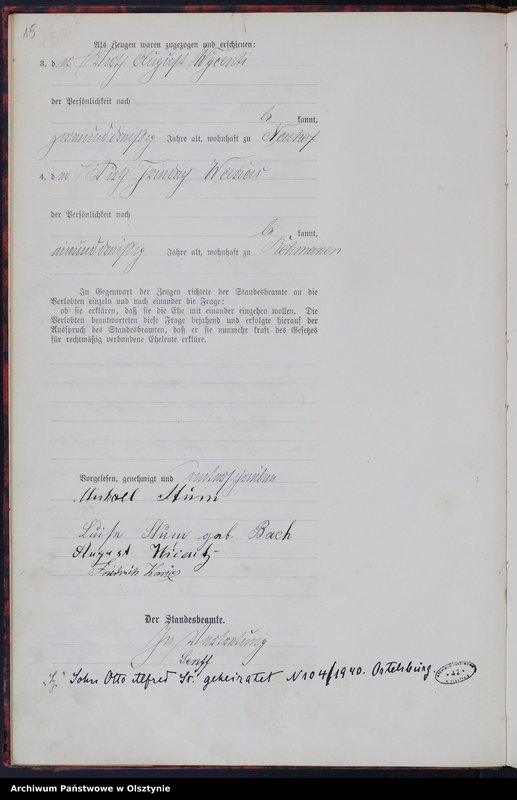 15
Als Zeugen waren zugezogen und erschienen:
3. der Wirth August
der Persönlichkeit nach
be kannt,
zweiunddreißig Jahre alt, wohnhaft zu Neuhof
4. der Wirth Friedrich
der Persönlichkeit nach
be kannt,
einunddreißig Jahre alt, wohnhaft zu
In Gegenwart der Zeugen richtete der Standesbeamte an die
Verlobten einzeln und nach einander die Frage:
ob sie erklären, daß sie die Ehe mit einander eingehen wollen. Die
Verlobten beantworteten diese Frage bejahend und erfolgte hierauf der
Ausspruch des Standesbeamten, daß er sie nunmehr kraft des Gesetzes
für rechtmäßig verbundene Eheleute erkläre.
Vorgelesen, genehmigt und unterschrieben
Sturm
Luise Sturm geb. Bach
August
Friedrich
Der Standesbeamte.
In Vertretung
Senff
Sohn Otto Alfred St. geheiratet N 104/1940. Ortelsburg
Archiwum Państwowe w Olsztynie